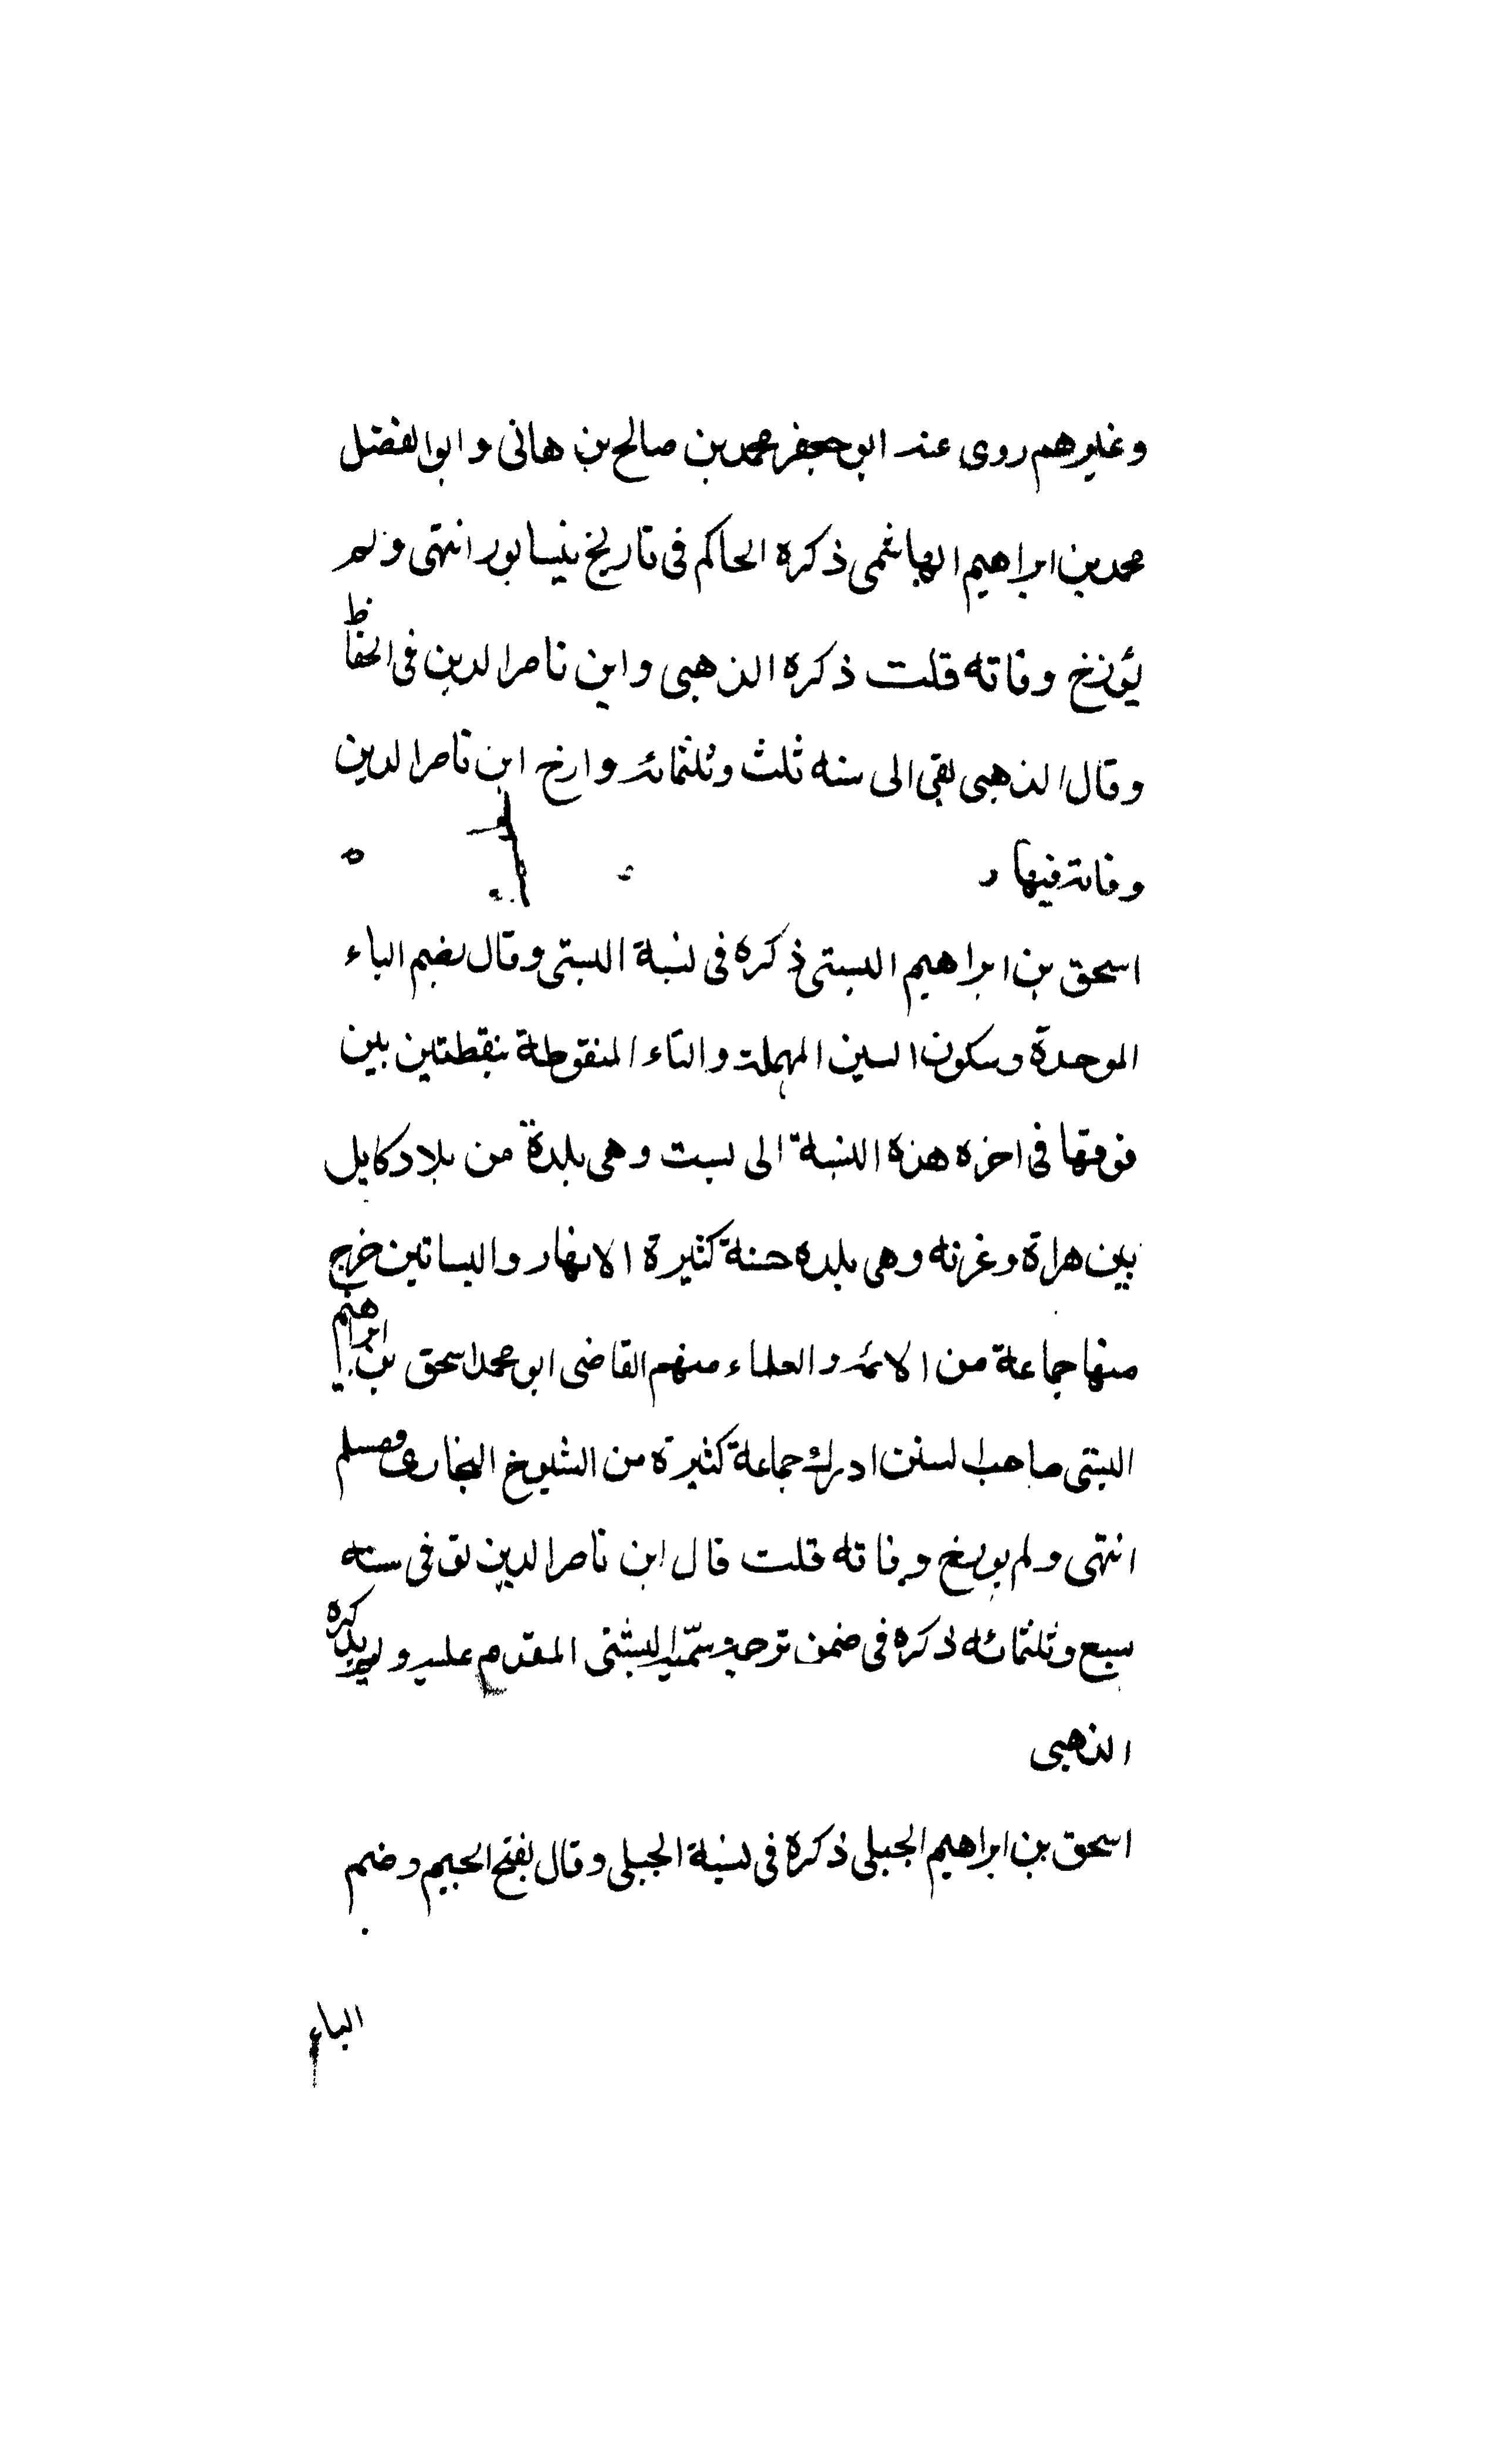 وغيرهم روى عنه ابو جعفر محمد بن صالح بن هانى وابو الفضل
محمد بن ابراهيم الهاشمى ذكره الحاكم فى تاريخ نيسابور انتهى ولم
يؤرخ وفاته قلت ذكره الذهبى وابن ناصر الدين فى الحفاظ
وقال الذهبى بقى الى سنه ثلث وثلثمائه وارخ ابن ناصر الدين
وفاته فيها
اسحق بن ابراهيم البستى ذكره فى نسبة البستى وقال بضم الباء
الموحدة وسكون السين المهملة والتاء المنقوطة بنقطتين بين
فوقها فى اخره هذه النسبة الى بست وهى بلدة من بلاد كابل
بين هراة وغزنه وهى بلده حسنة كثيرة الانهار والبساتين خرج
منها جماعة من الائمه والعلماء منهم القاضى ابو محمد اسحق بن ابراهيم
البستى صاحب السنن ادرك جماعة كثيرة من الشيوخ البخارى ومسلم
انتهى ولم يورخ وفاته قلت قال ابن ناصر الدين توفى سنه
سبع وثلثمائه ذكره فى ضمن ترجمة سميه البشتى المقدم عليه ولم يذكره
الذهبى
اسحق بن ابراهيم الجبلى ذكره فى نسبة الجبلى وقال بفتح الجيم وضم
الباء